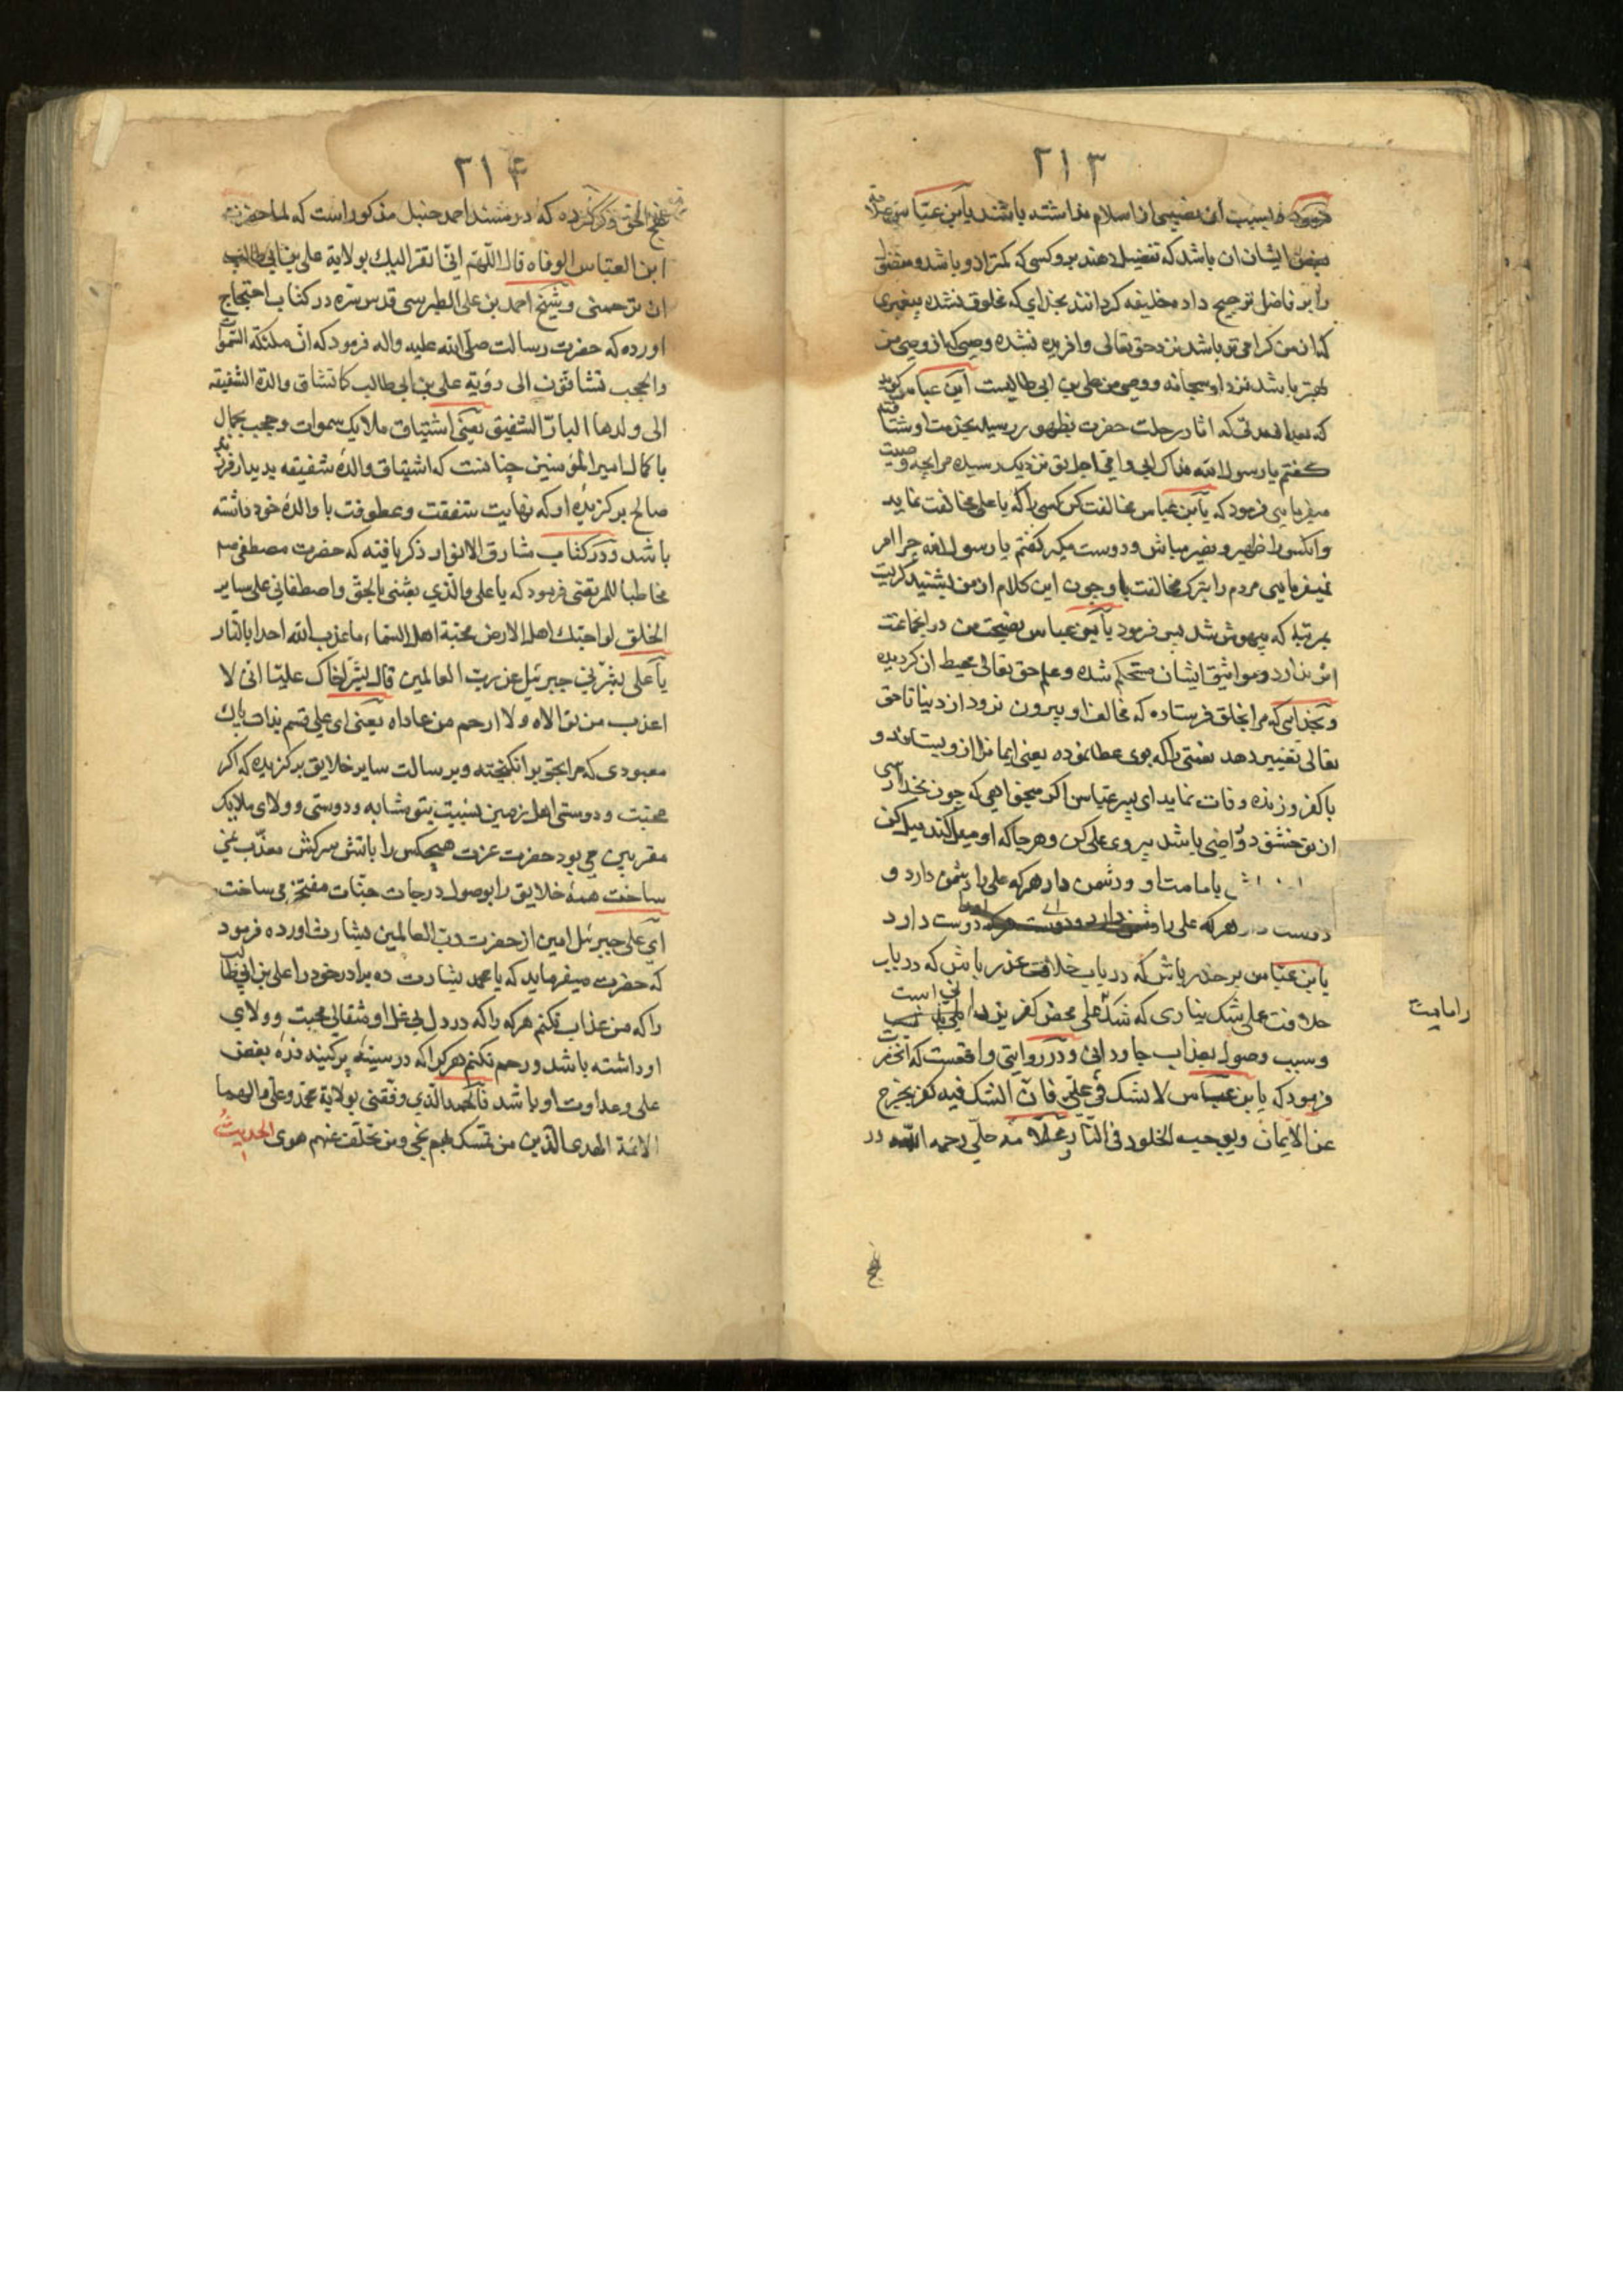 ۲۱۳
فرمود بسبب آن نصیبی از اسلام نداشته باشند یا بن عباس علامة
بغض ایشان ان باشد که تفضیل دهند برو کسی که کمتر ازو باشد و مفضول
را بر فاضل ترجیح داده خلیفه کردانند بخدای که مخلوق نشده پیغمبری
که از من کرامی تر باشد نزد حق تعالی و افریده نشده وصیی که از وصی من
بهتر باشد نزد او سبحانه و وصی من علی بن ابی طالبست ابن عباس کوید
که بعد از مدتی که اثار رحلت حضرت بظهور رسید بخدمت او شتافتم
کفتم یا رسول الله فداک ابی و امی اجل تو نزدیک رسیده مرا بچه وصیت
میفرمایی فرمود که یا بن عباس مخالفت کن کسی را که با علی مخالفت نماید
و انکس را ظهیر و نصیر مباش و دوست مکیر کفتم یا رسول الله چرا امر
نمیفرمایی مردم را بترک مخالفت با او چون این کلام از من بشنید کریست
بمرتبه که بیهوش شد پس فرمود یا بن عباس نصیحت من در انجماعت
اثر ندارد و مواثیق ایشان مستحکم شده و علم حق تعالی محیط ان کردیده
و بخدایی که مرا بخلق فرستاده که مخالف او بیرون نرود از دنیا تا حق
تعالی تغییر دهد نعمتی را که بوی عطا نموده یعنی ایمانرا از و بستاند و
با کفر و زنده وفات نماید ای پسر عباس اکر میخواهی که چون بخدا رسی
از تو خشنود و راضی باشد پیروی علی کن و هر جا که او میل کند میل کن
باش بامامت او و دشمن دار هرکه علی را دشمن دارد و
دوست دار هرکه علی را دوست دارد
یا بن عباس بر حذر باش که در باب خلافت عذر باش که در باب
خلافت علی شک نیاری که شک در علی محض کفر
و سبب وصول بعذاب جاودانی و در روایتی واقعست که انحضرت
فرمود که یا بن عباس لا تشک فی علی فان الشک فیه کفر یخرج
عن الایمان و یوجب الخلود فی النار و علامه حلی رحمه الله در
را امامت
نهج
۲۱۴
نهج الحق ذکر کرده که در مسند احمد حنبل مذکور است که لما حضرت
ابن العباس الوفاه قال اللهم انی اتقرب الیک بولایة علی بن ابی طالب
ان ترحمنی و شیخ احمد بن علی الطبرسی قدس سره در کتاب احتجاج
اورده که حضرت رسالت صلی الله علیه واله فرمود که ان ملئکة السموات
والحجب تشتاقون الی رؤیة علی بن ابی طالب کما تشتاق والدة الشفیقه
الی ولدها البار الشفیق یعنی اشتیاق ملایک سموات و حجب بجمال
با کمال امیر المؤمنین چنانست که اشتیاق والدهٔ شفیقه بدیدار فرزند
صالح برکزیدهٔ او که نهایت شفقت و عطوفت با والدهٔ خود داشته
باشد و در کتاب مشارق الانوار ذکر یافته که حضرت مصطفی ص
مخاطبا للمرتضی فرمود که یا علی والذی بعثنی بالحق واصطفانی علی سایر
الخلق لو احبک اهل الارض محبة اهل السماء ما عذب الله احدا بالنار
یا علی بشرنی جبرئیل عن رب العالمین قال بشر اخاک علیا انی لا
اعذب من توالاه ولا ارحم من عاداه یعنی ای علی قسم بذات پاک
معبودی که مرا بحق برانکیخته و برسالت سایر خلایق برکزیده که اکر
محبت و دوستی اهل زمین نسبت بتو مشابه و دوستی و ولای ملایک
مقربین می بود حضرت عزت هیچکس را باتش سرکش معذب نمی
ساخت همهٔ خلایق را بوصول درجات جنات مفتخر می ساخت
ای علی جبرئیل امین از حضرت رب العالمین بشارت اورده فرمود
که حضرت میفرماید که یا محمد بشارت ده برادر خود را علی بن ابی طالب
را که من عذاب نکنم هرکه را که در دل بی غل او مثقالی محبت و ولای
او داشته باشد و رحم نکنم هرکرا که در سینهٔ پرکینه ذرهٔ بغض
علی و عداوت او باشد فالحمد الذی وفقنی بولایة محمد وعلی والهما
الائمة الهدی الذین من تمسک بهم نجی ومن تخلف عنهم هوی الحدیث